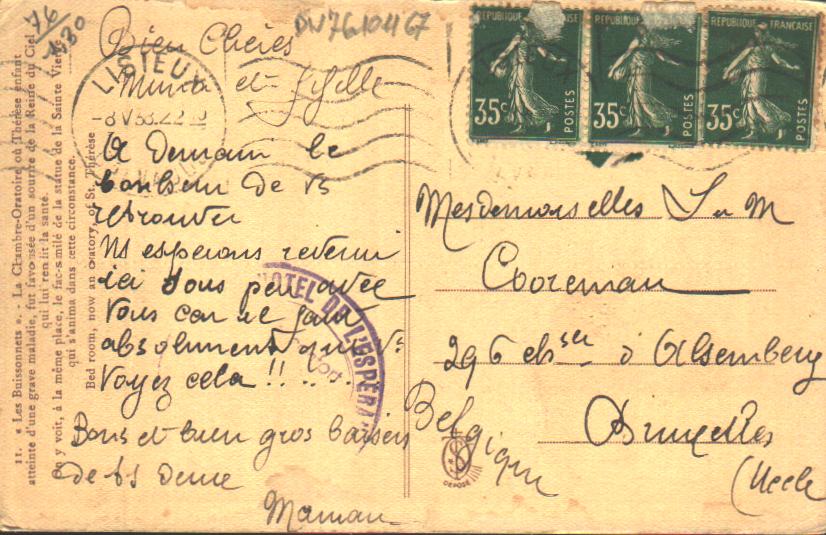 76
DW7610467
Bien Chères
Mimie et
A Demain le
bonheur de vs
retrouver
Ns esperons revenir
ici sous peu avec
Vous car il faut
absolument que vs
voyez cela !! .....
Bons et bien gros baisers
de ts deux
Maman
LISIEUX
-8 V 33.22
HOTEL DE L'ESPÉRA
REPUBLIQUE FRANÇAISE
35c POSTES
REPUBLIQUE FRANÇAISE
35c POSTES
REPUBLIQUE FRANÇAISE
35c POSTES
Mesdemoiselles S & M
Cooreman
296 chsée d'Alsemberg
Bruxelles
(Uccle
Belgique
DEPOSÉ
11. « Les Buissonnets ». - La Chambre-Oratoire où Thérèse enfant
atteinte d'une grave maladie, fut favorisée d'un sourire de la Reine du Ciel
qui lui rendit la santé.
On y voit, à la même place, le fac-similé de la statue de la Sainte Vierge
qui s'anima dans cette circonstance.
Bed room, now an oratory, of St. Thérèse